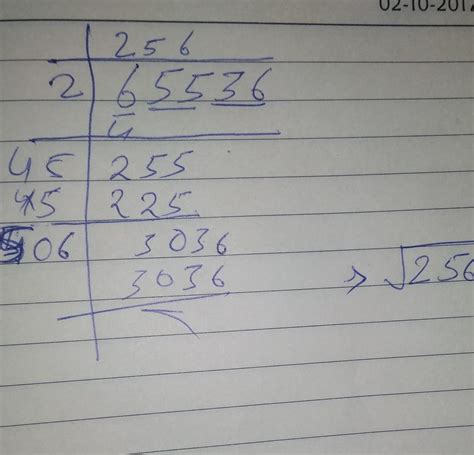 02-10-201
256
2 65536
4
45 255
×5 225
506 3036
3036
⇒ √256